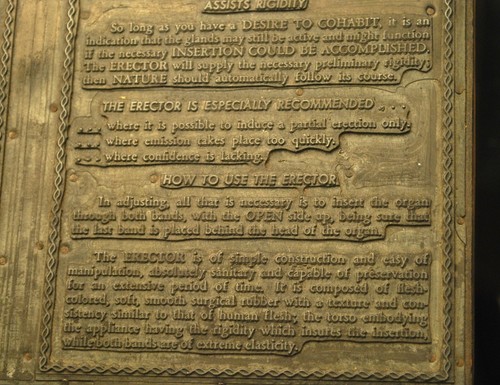 ASSISTS RIGIDITY
So long as you have a DESIRE TO COHABIT, it is an
indication that the glands may still be active and might function
if the necessary INSERTION COULD BE ACCOMPLISHED.
The ERECTOR will supply the necessary preliminary rigidity;
then NATURE should automatically follow its course.
THE ERECTOR IS ESPECIALLY RECOMMENDED . . . .
. . . where it is possible to induce a partial erection only.
. . . where emission takes place too quickly.
. . . where confidence is lacking.
HOW TO USE THE ERECTOR
In adjusting, all that is necessary is to insert the organ
through both bands, with the OPEN side up, being sure that
the last band is placed behind the head of the organ.
The ERECTOR is of simple construction and easy of
manipulation, absolutely sanitary and capable of preservation
for an extensive period of time. It is composed of flesh-
colored, soft, smooth surgical rubber with a texture and con-
sistency similar to that of human flesh; the torso embodying
the appliance having the rigidity which insures the insertion,
while both bands are of extreme elasticity.